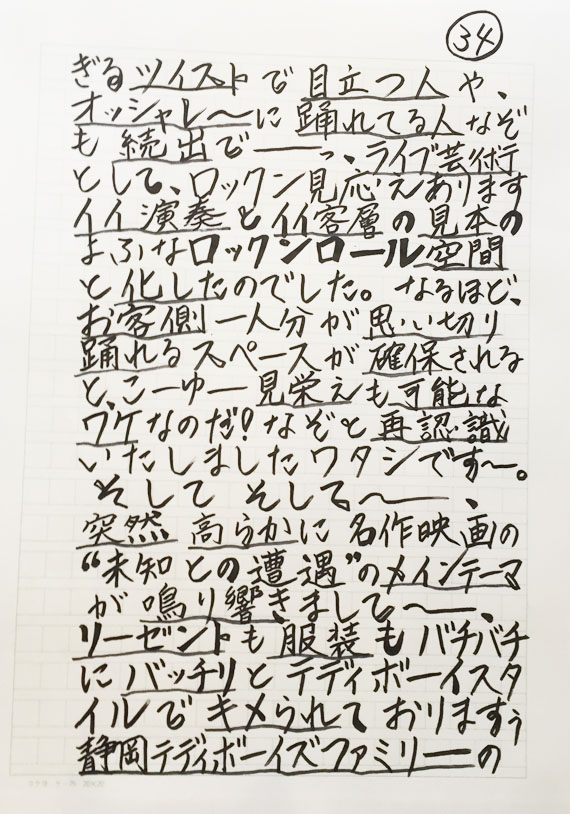 34
ぎるツイストで目立つ人や、
オッシャレ〜に踊れてる人なぞ
も続出で――っ、ライブ芸術
として、ロックン見応えあります
イイ演奏とイイ客層の見本の
よふなロックンロール空間
と化したのでした。なるほど、
お客側一人分が思い切り
踊れるスペースが確保される
と、こーゆー見栄えも可能な
ワケなのだ!なぞと再認識
いたしましたワタシです〜。
そして そして〜――、
突然 高らかに 名作映画の
“未知との遭遇”のメインテーマ
が鳴り響きまして〜――、
リーゼントも服装もバチバチ
にバッチリとテディボーイスタ
イルでキメられておりますぅ
静岡テディボーイズファミリーの